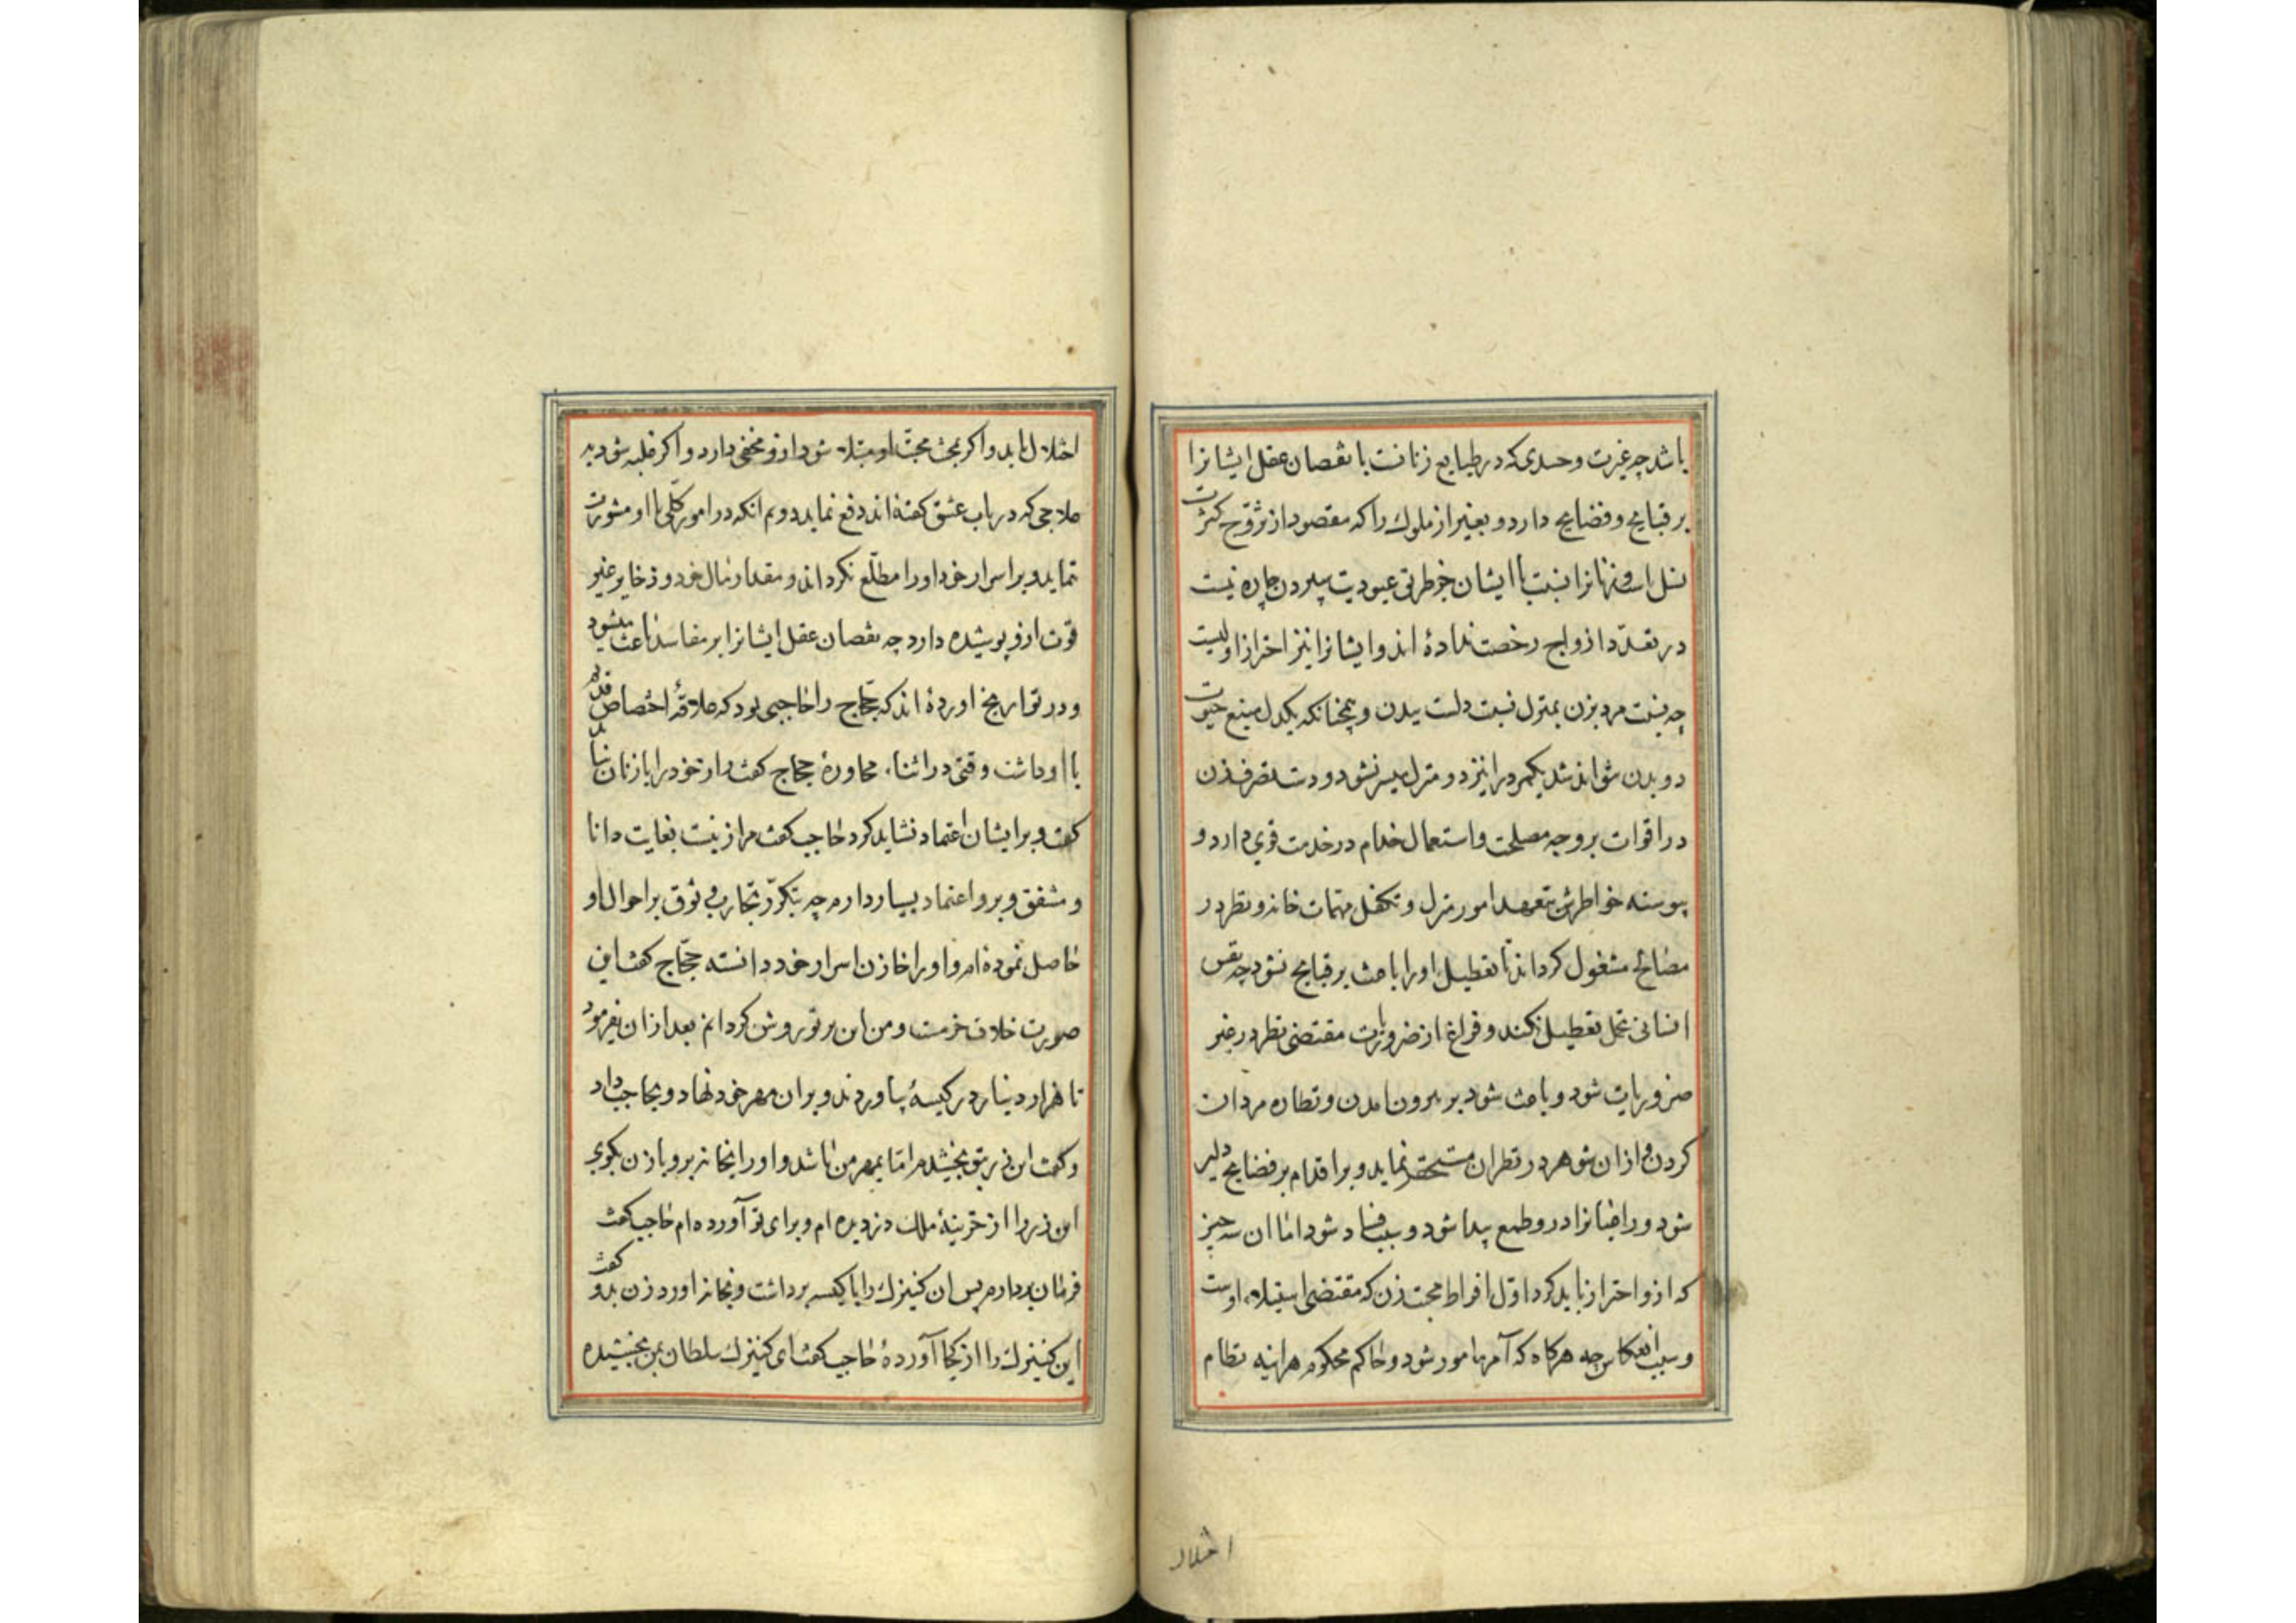 باشد چه غیرت و حسدی که در طبایع زنانست با نقصان عقل ایشانرا
بر قبایح و فضایح دارد و بغیر از ملوک را که مقصود از تزوّج کثرت
نسل است و زنانرا نسبت با ایشان جز طریق عبودیت سپردن چاره نیست
در تعدّد ازواج رخصت نداده اند و ایشانرا نیز احتراز اولیست
چه نسبت مرد بزن بمنزل نسبت دلست ببدن و همچنانکه یکدل منبع حیوت
دو بدن نتواند شد یکمرد را نیز دو منزل میسر نشود و دست تصرف زن
در اقوات بر وجه مصلحت و استعمال خدام در خدمت قوی دارد و
پیوسته خواطرش بتعهد امور منزل و تکفل مهمات خانه و نظر در
مصالح مشغول کرداند تا تعطیل او را باعث بر قبایح نشود چه نفس
انسانی تحمل تعطیل نکند و فراغ از ضروریات مقتضی نظر در غیر
ضروریات شود و باعث شود بر بیرون آمدن و نظاره مردان
کردن و ازان شوهر در نظر ان مستحقر نماید و بر اقدام بر فضایح دلیر
شود و راغبانرا درو طمع پیدا شود و سبب فساد شود اما ان سه چیز
که ازو احتراز باید کرد اوّل افراط محبت زن که مقتضی استیلاء اوست
و سبب انعکاس چه هرکاه که آمر مامور شود و حاکم محکوم هراینه نظام
اختلال
اختلال یابد و اکر بمحبّت او مبتلا شود ازو مخفی دارد و اکر غلبه شود به
علاجی که در باب عشق کفته اند دفع نماید دوم انکه در امور کلّی با او مشورت
ننماید و بر اسرار خود او را مطلّع نکرداند و مقدار مال خود و ذخایر غیر
قوت ازو پوشیده دارد چه نقصان عقل ایشانرا بر مفاسد باعث میشود
و در تواریخ اورده اند که حجّاج را حاجبی بود که علاقهٔ اختصاص قدیم
با او داشت وقتی در اثناء محاورهٔ حجاج کفت راز خود را با زنان نباید
کفت و بر ایشان اعتماد نشاید کرد حاجب کفت مرا زنیست بغایت دانا
و مشفق و برو اعتماد بسیار دارم چه بتکرّر تجارب وثوق بر احوال او
حاصل نموده ام و او را خازن اسرار خود دانسته حجّاج کفت این
صورت خلاف خرمست و من این بر تو روشن کردانم بعد ازان بفرمود
تا هزار دینار در کیسهٔ بیاوردند و بر ان مهر خود نهاد و بحاجب داد
و کفت این زر بتو بخشیدم اما بمهر من باشد و او را بخانه بر و با زن بکوی
این زر را از خزینهٔ ملک دزدیده ام و برای تو آورده ام حاجب کفت
فرمان بردارم پس ان کنیزک را با کیسه برداشت و بخانه اورد زن بدو کفت
این کنیزک را از کجا آوردهٔ حاجب کفت ای کنیزک سلطان بمن بخشیده